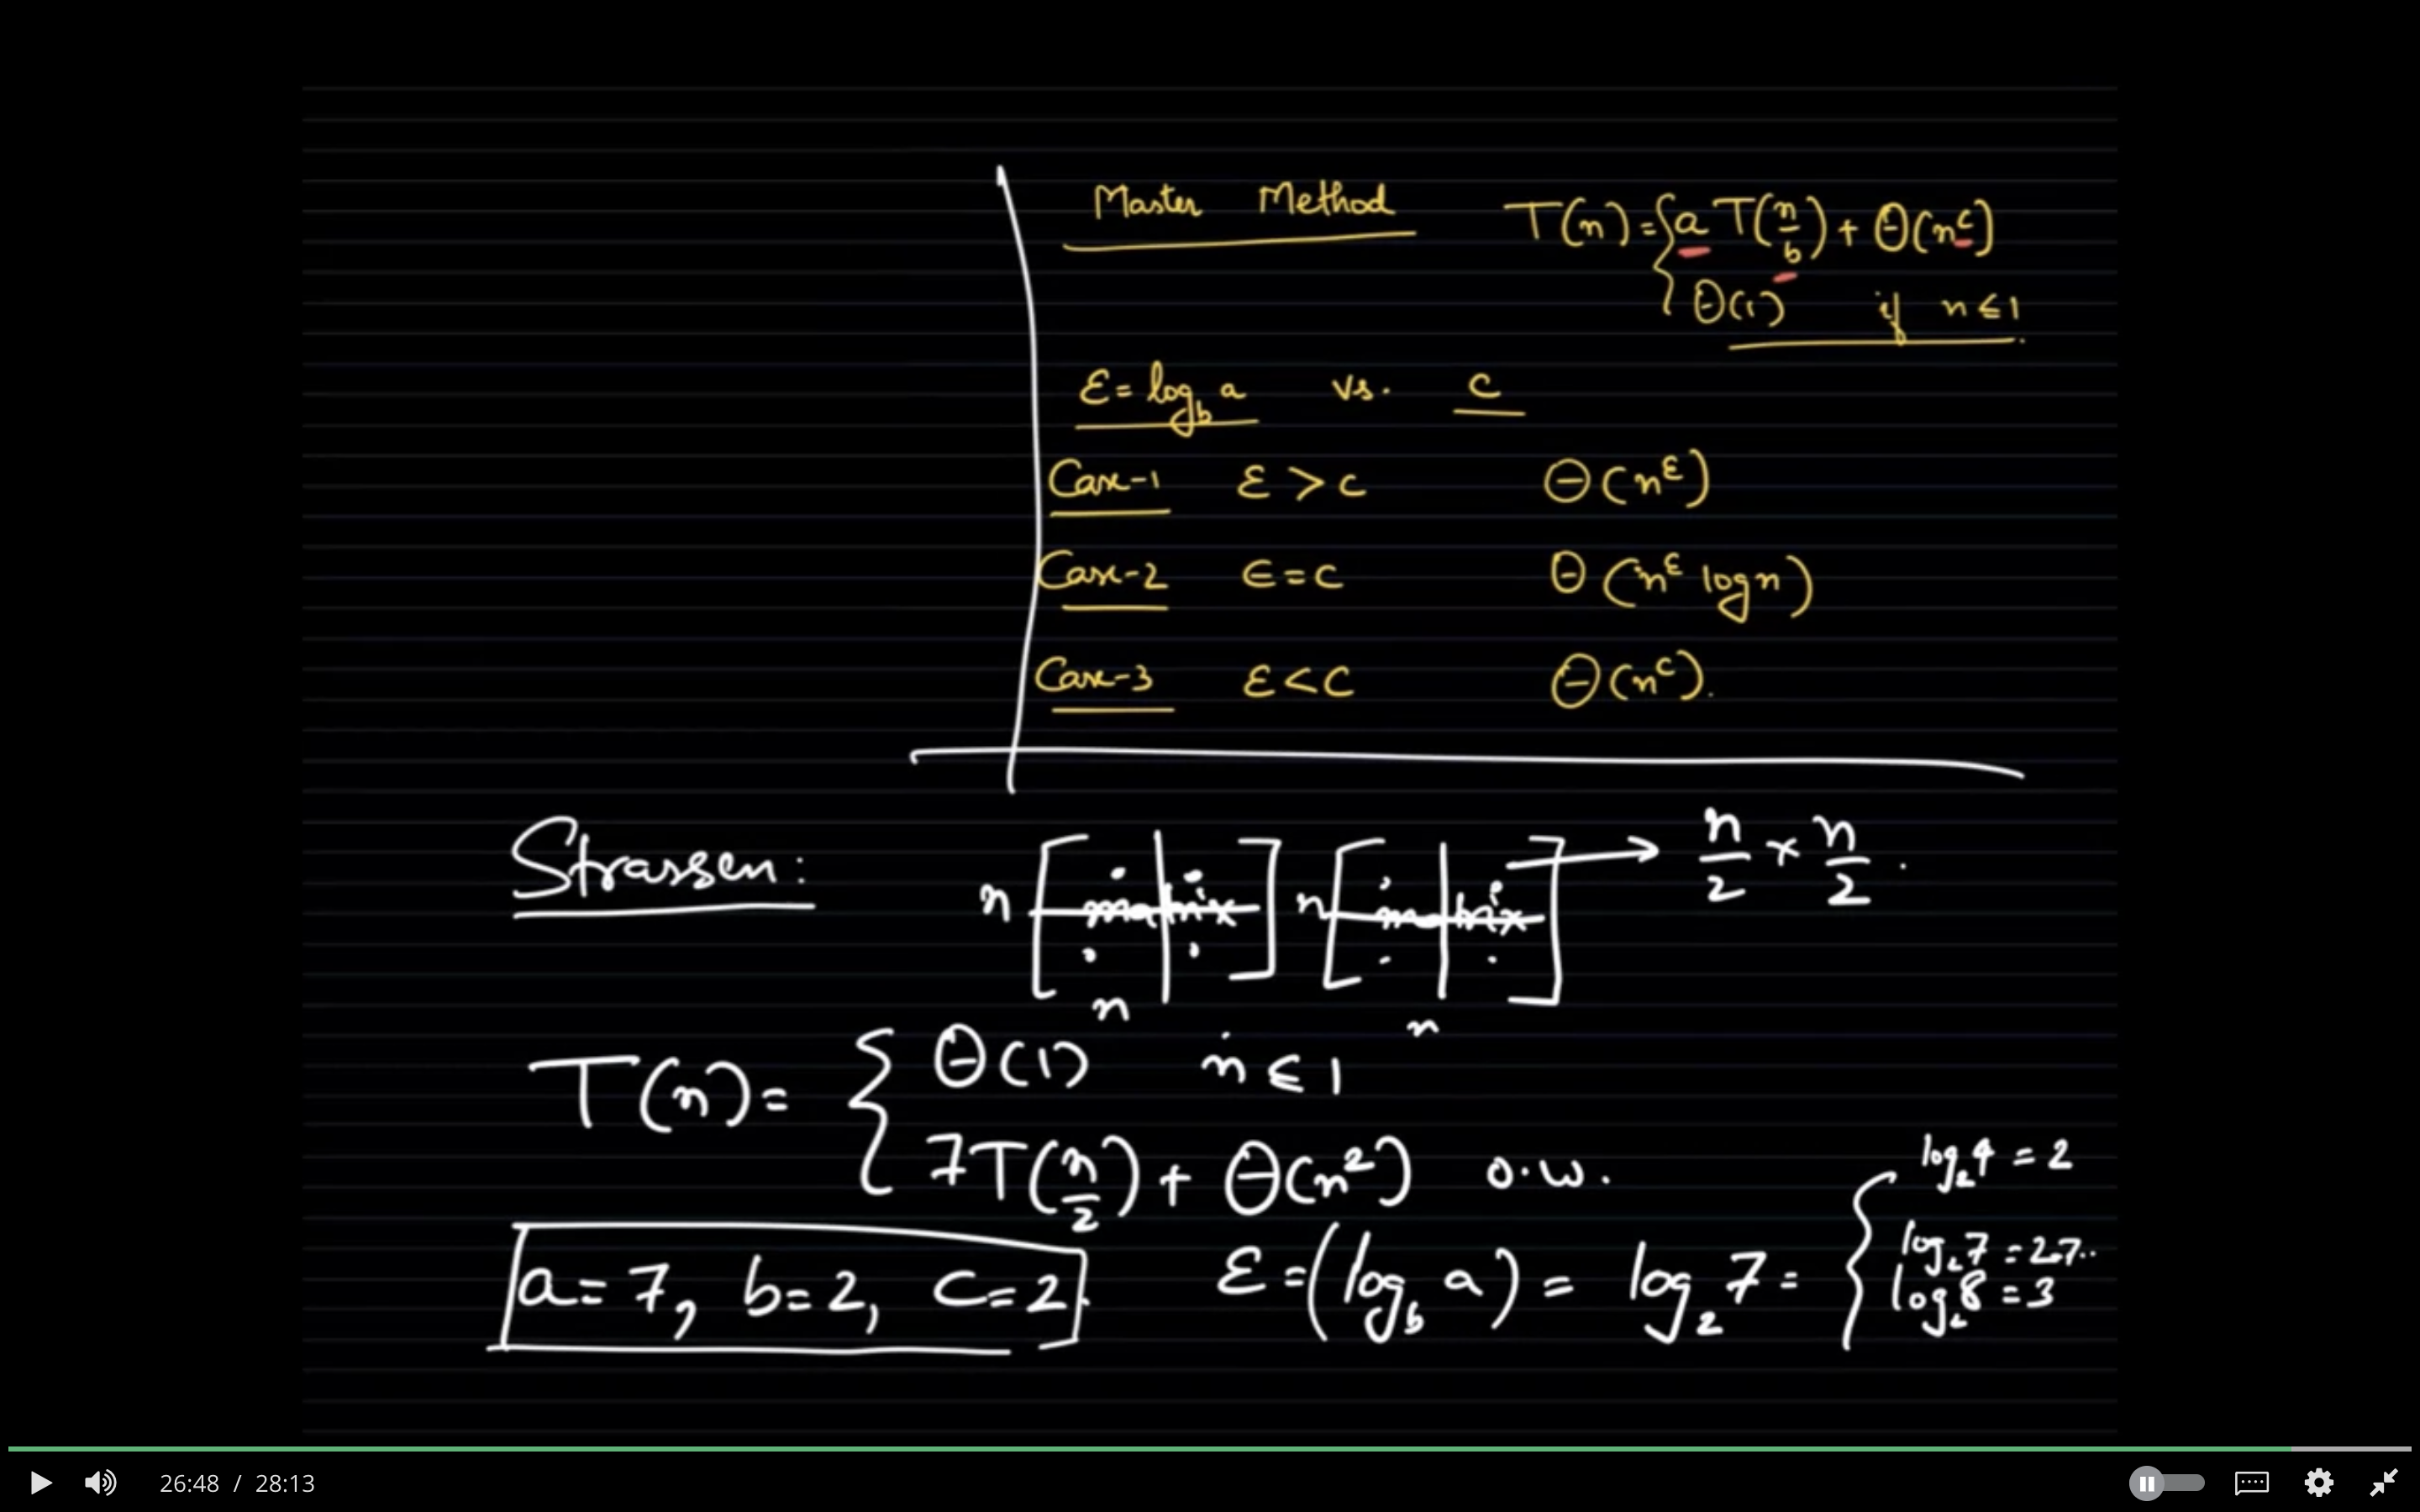 Master Method T(n) = { a T(n/b) + Θ(n^c)
Θ(1) if n ≤ 1.
ε = log_b a vs. c
Case-1 ε > c Θ(n^ε)
Case-2 ε = c Θ(n^ε log n)
Case-3 ε < c Θ(n^c).
Strassen: n [matrix] n [matrix] → n/2 × n/2.
n n
T(n) = { Θ(1) n ≤ 1
7T(n/2) + Θ(n^2) o.w.
a = 7, b = 2, c = 2. ε = (log_b a) = log_2 7 = {
log_2 4 = 2
log_2 7 = 2.7..
log_2 8 = 3
26:48 / 28:13